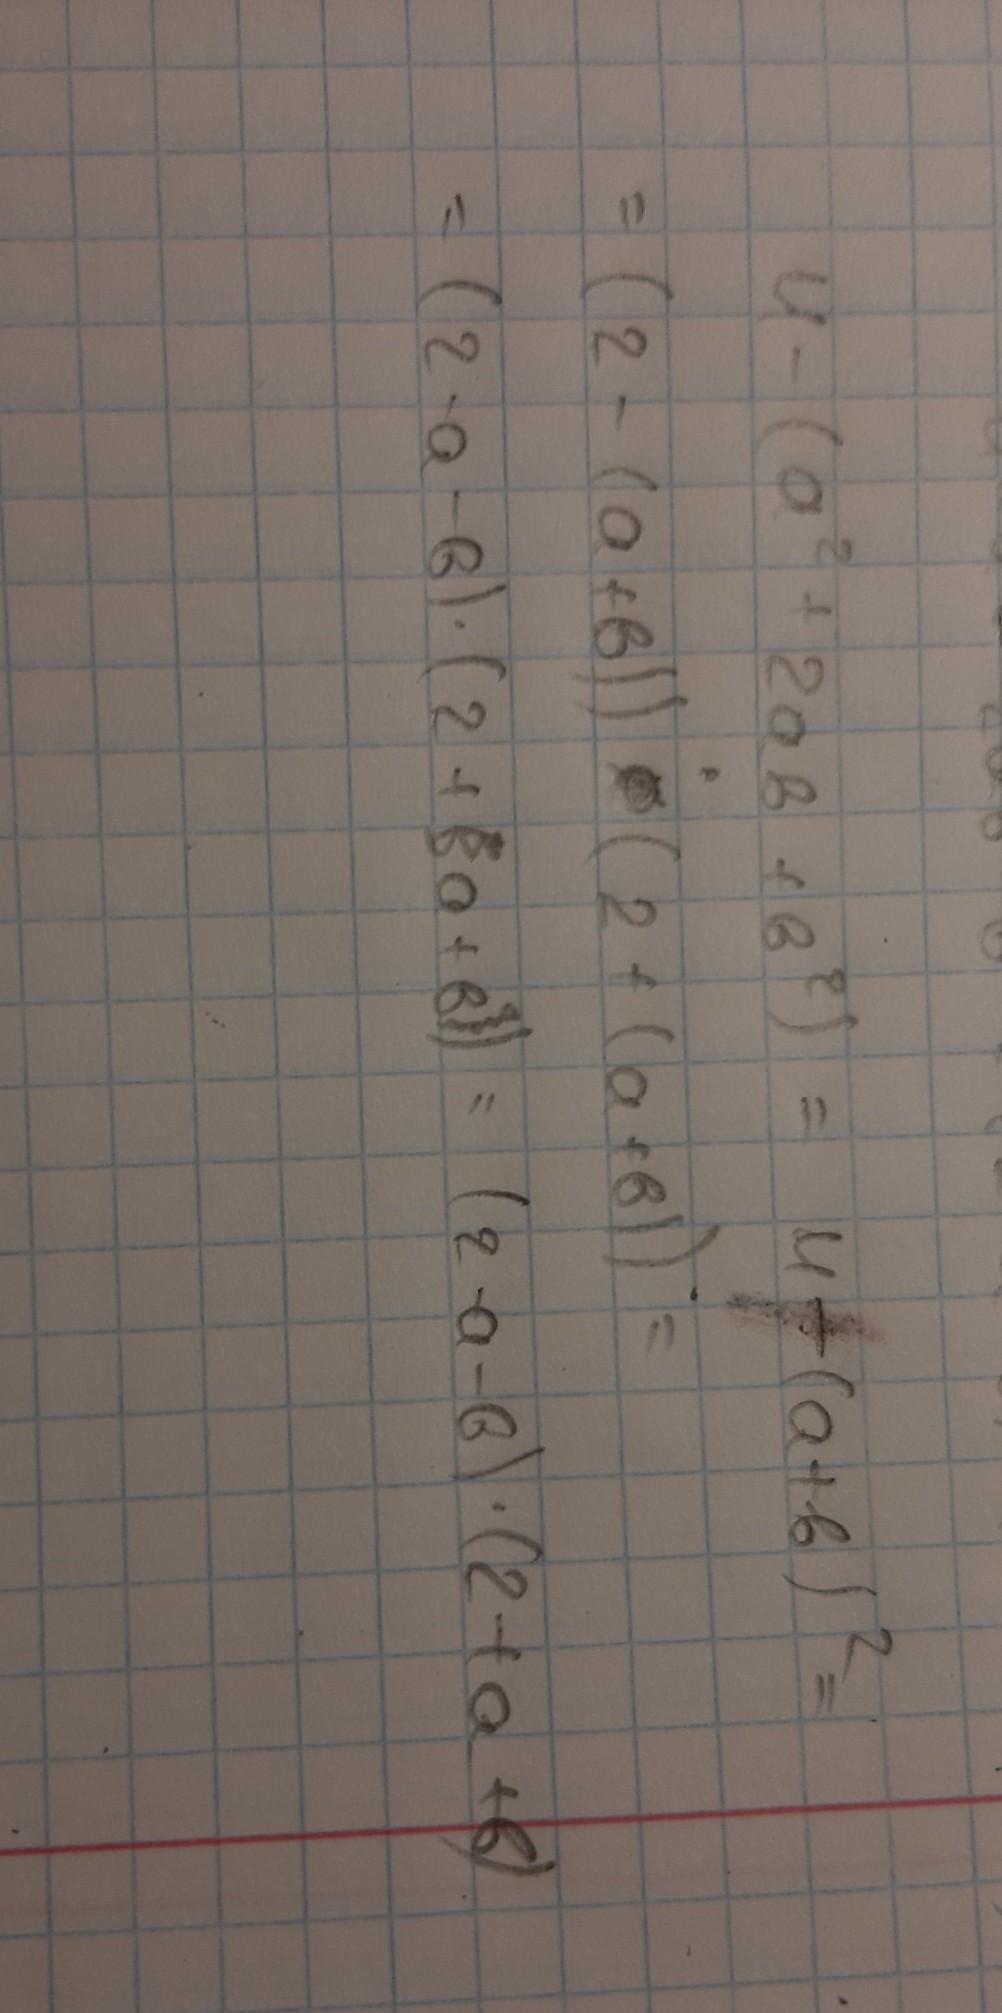 4 - (a² + 2ab + b²) = 4 - (a+b)² =
= (2 - (a+b)) · (2 + (a+b)) =
= (2 - a - b) · (2 + a + b) = (2 - a - b) · (2 + a + b)